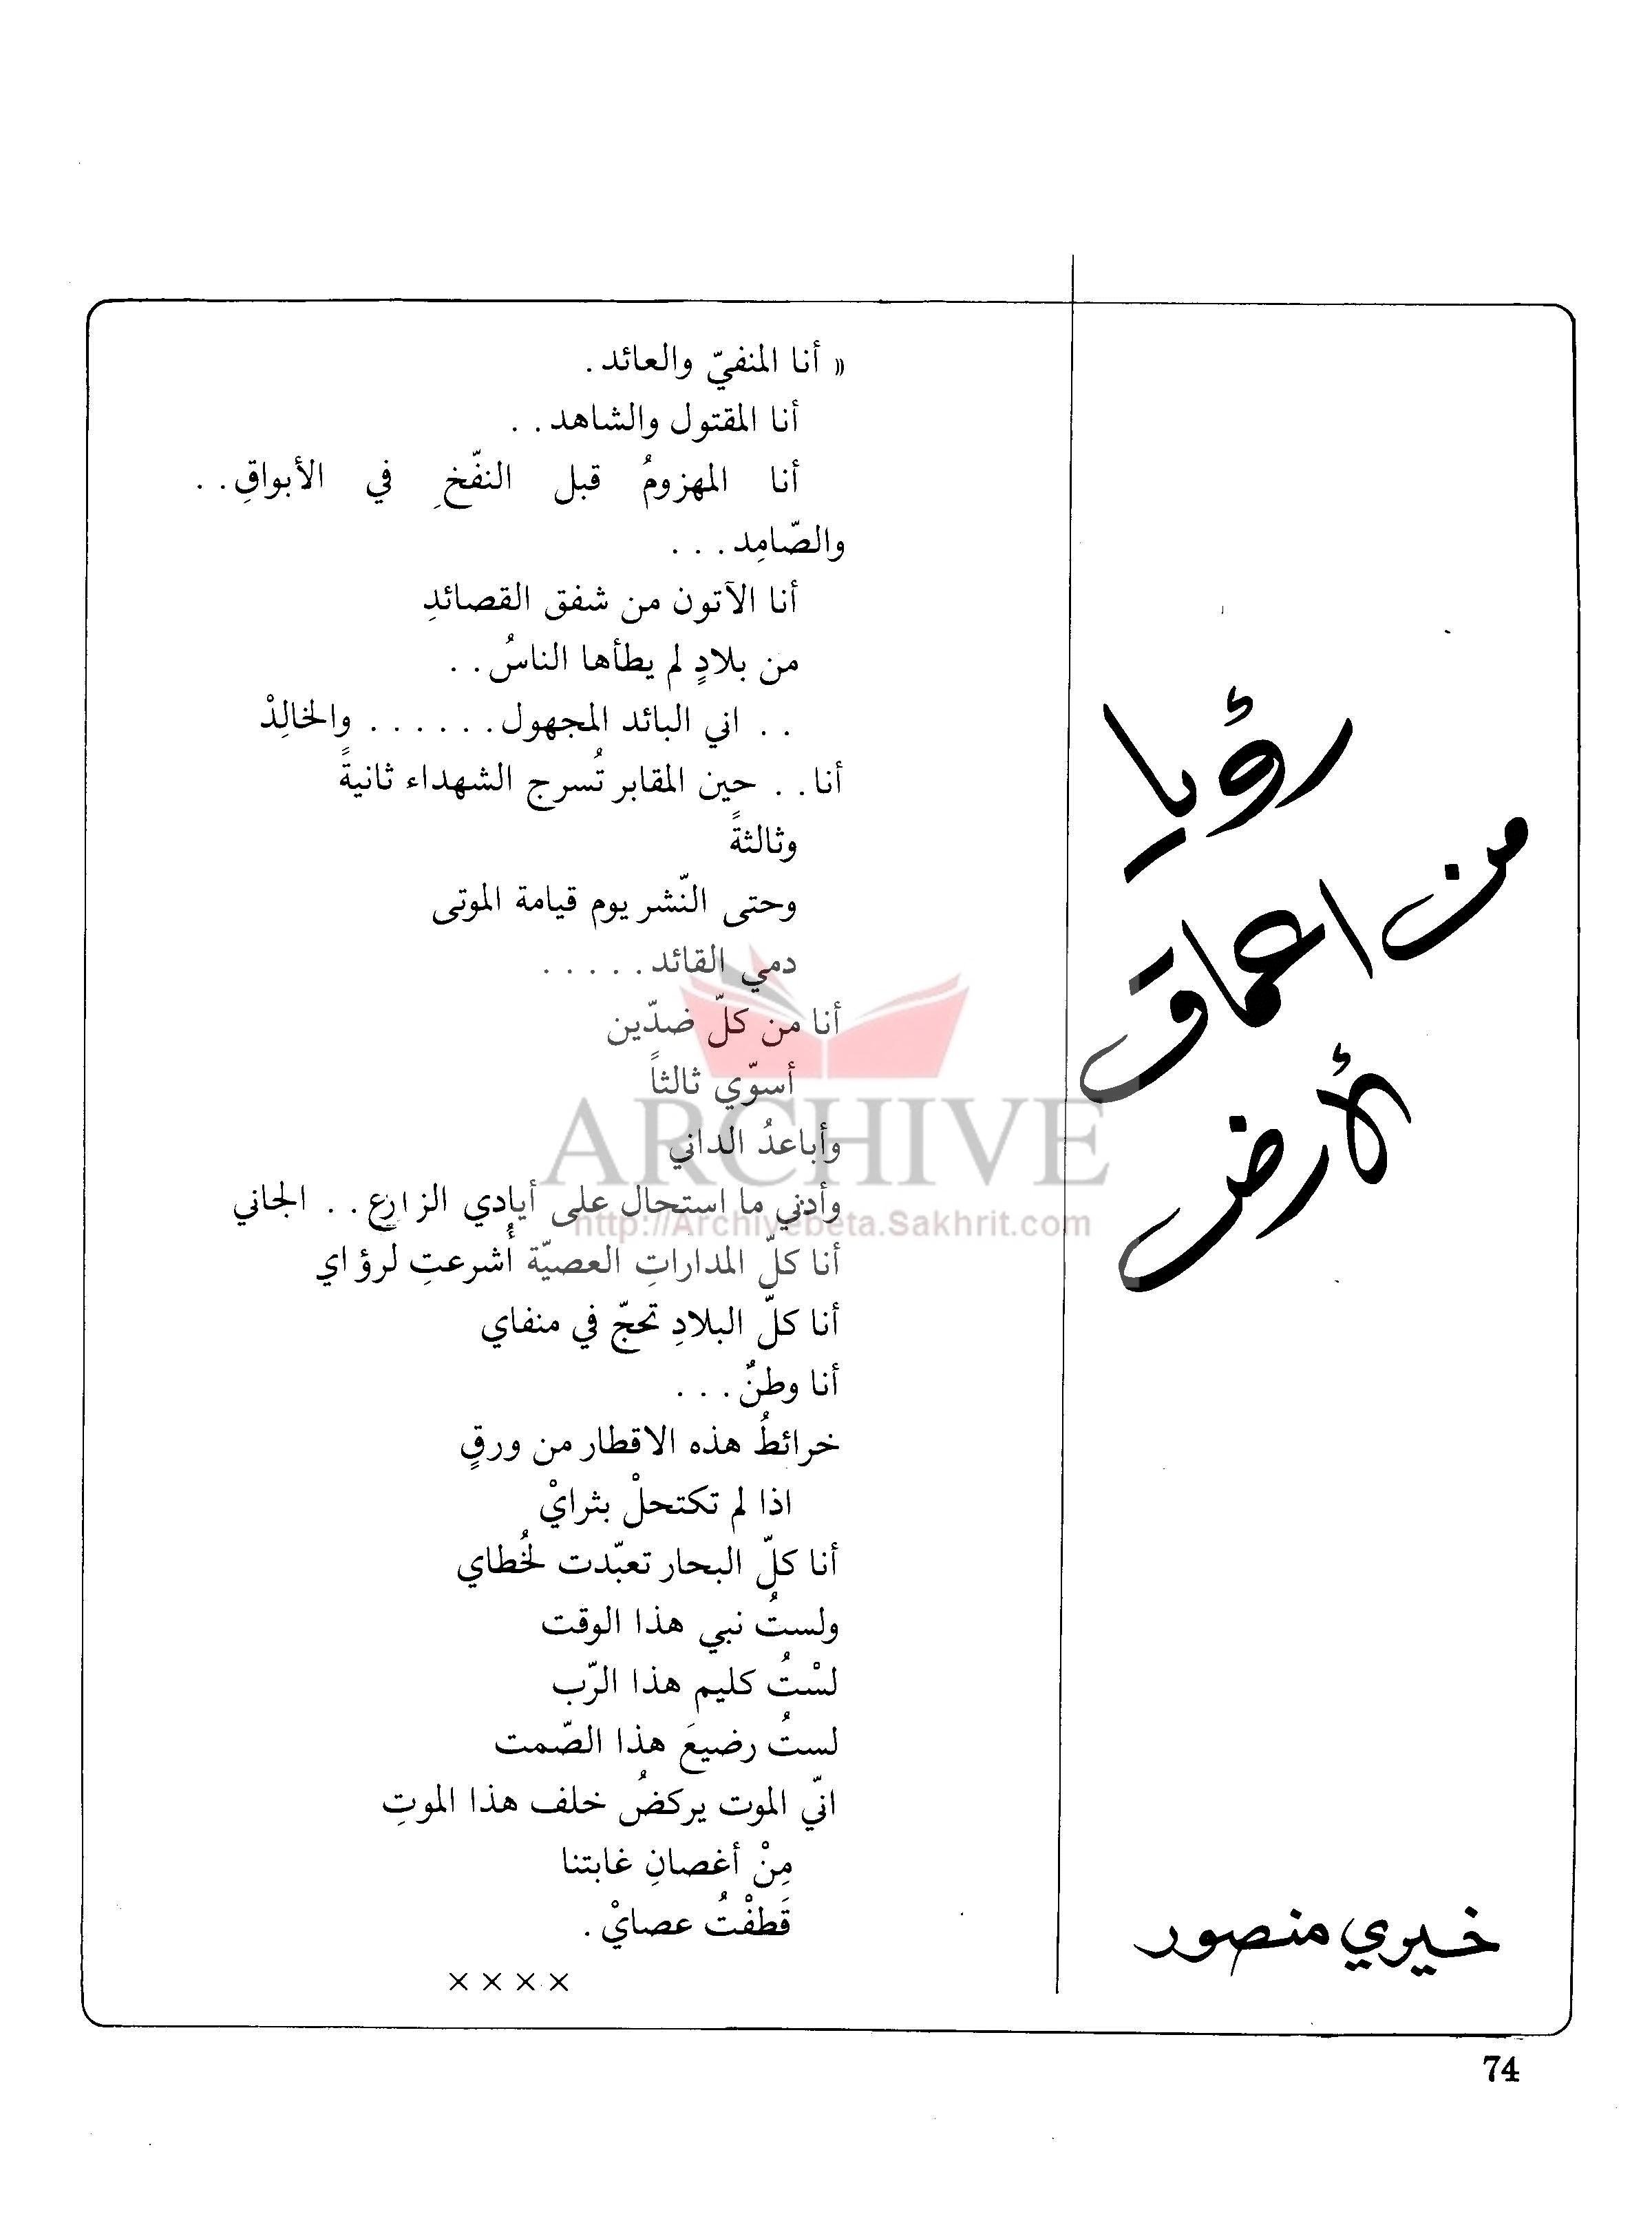 رؤيا
من اعماق
الأرض
خيري منصور
« أنا المنفيّ والعائد.
أنا المقتول والشاهد..
أنا المهزومُ قبل النفّخِ في الأبواقِ..
والصّامِد...
أنا الآتون من شفق القصائدِ
من بلادٍ لم يطأها الناسُ..
.. اني البائد المجهول...... والخالِدْ
أنا.. حين المقابر تُسرج الشهداء ثانيةً
وثالثةً
وحتى النّشر يوم قيامة الموتى
دمي القائد.....
أنا من كلّ ضدّين
أسوّي ثالثاً
وأباعدُ الداني
وأدني ما استحال على أيادي الزارع.. الجاني
أنا كلّ المداراتِ العصيّة أُشرعتِ لرؤاي
أنا كلّ البلادِ تحجّ في منفاي
أنا وطنٌ...
خرائطُ هذه الاقطار من ورقٍ
اذا لم تكتحلْ بثرايْ
أنا كلّ البحار تعبّدت لخُطاي
ولستُ نبي هذا الوقت
لسْتُ كليم هذا الرّب
لستُ رضيعَ هذا الصّمت
انّي الموت يركضُ خلف هذا الموتِ
مِنْ أغصانِ غابتنا
قَطفْتُ عصايْ.
××××
ARCHIVE
http://Archivebeta.Sakhrit.com
74